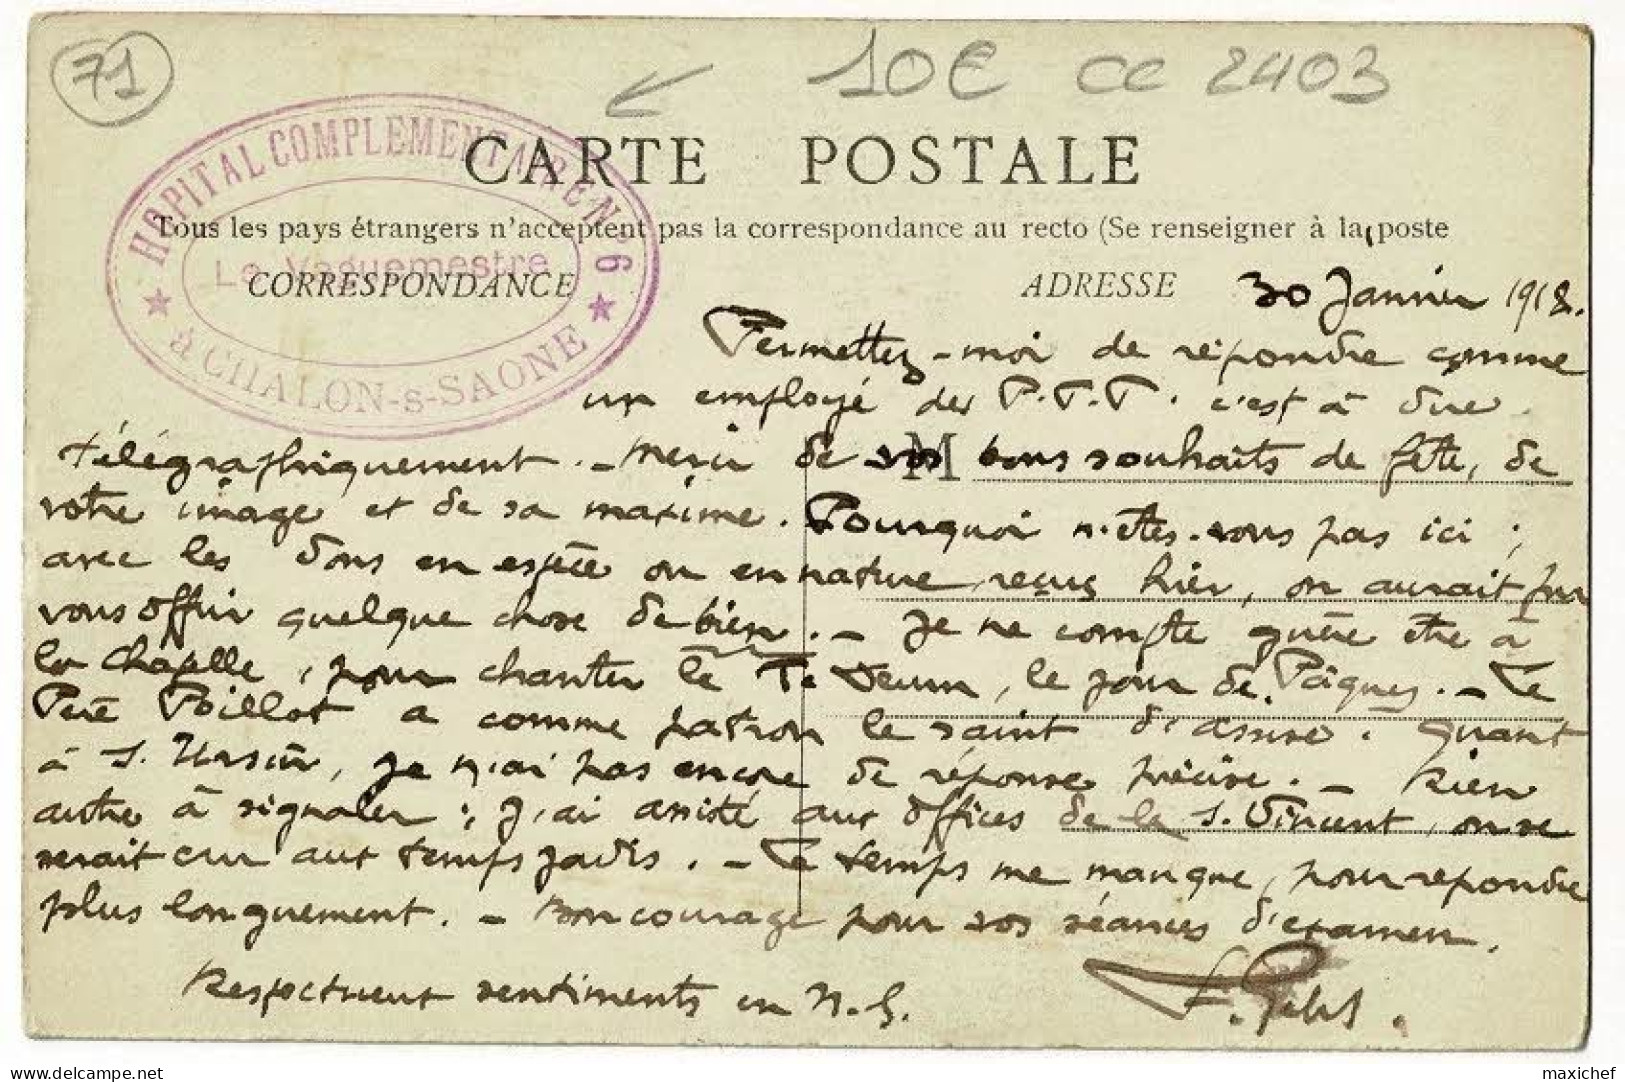 71
10€ CC 2403
HOPITAL COMPLEMENTAIRE N° 6
Le Vaguemestre
★ à CHALON-s-SAONE ★
CARTE POSTALE
Tous les pays étrangers n'acceptent pas la correspondance au recto (Se renseigner à la poste
CORRESPONDANCE
ADRESSE
M
30 Janvier 1918.
Permettez-moi de répondre comme
un employé des P.T.T. c'est à dire
télégraphiquement. - Merci de vos bons souhaits de fête, de
votre image et de sa maxime. Pourquoi n'êtes-vous pas ici ;
avec les dons en espèce ou en nature reçus hier, on aurait pu
vous offrir quelque chose de bien. - Je ne compte guère être à
la chapelle, pour chanter le Te Deum, le jour de Pâques. - Le
Père Poillot a comme patron le saint d'assise. Quant
à S. Ursin, je n'ai pas encore de réponse précise. - Rien
autre à signaler : j'ai assisté aux offices de la S. Vincent, on se
serait cru aux temps jadis. - Le temps me manque, pour répondre
plus longuement. - Bon courage pour vos séances d'examen.
Respectueux sentiments en N.S.
delcampe.net
maxichef